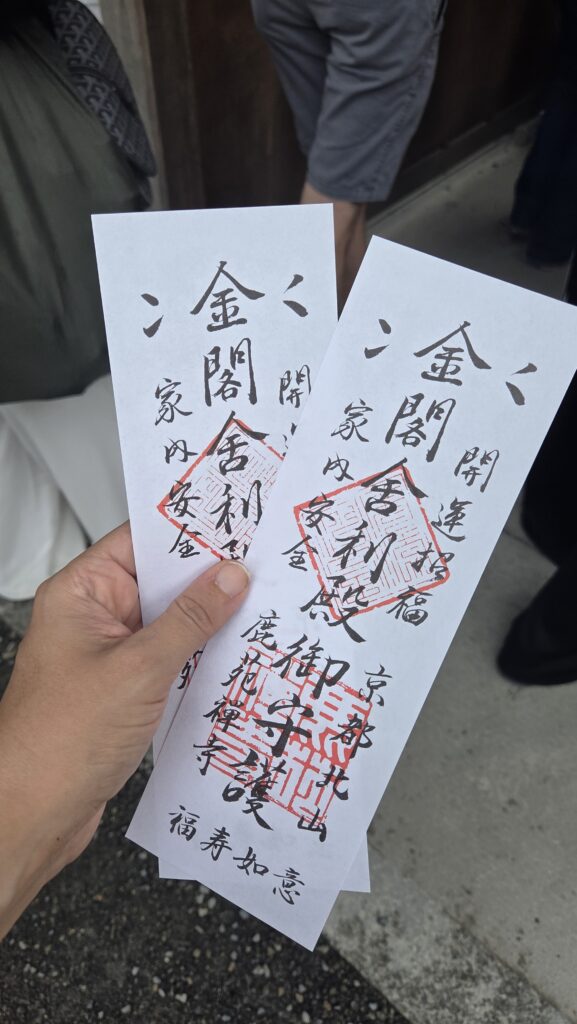 開運招福
京都北山
金閣舎利殿御守護
家内安全
鹿苑禅寺
福寿如意
開
金閣舎利
家内安全